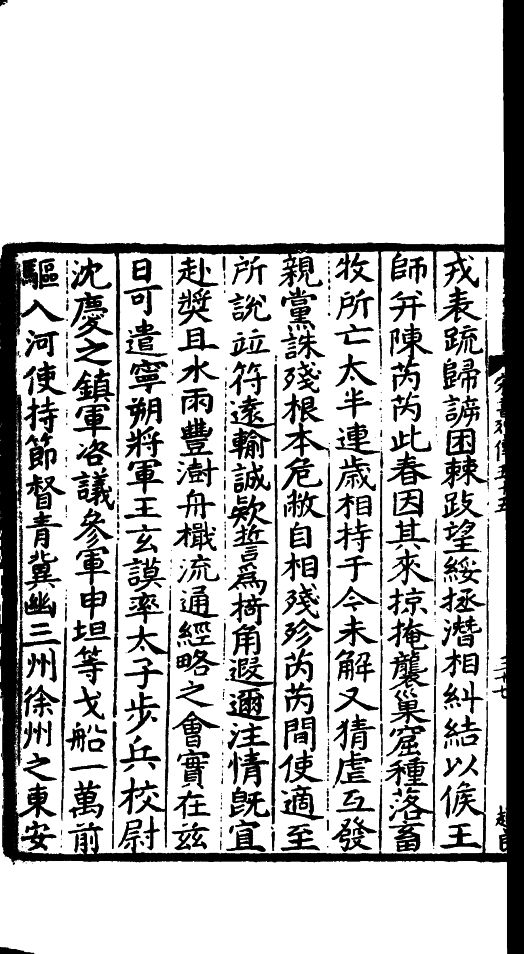 戎表疏歸訴困棘跂望綏拯潛相糾結以俟王
師并陳芮芮此春因其來掠掩襲巢窟種落畜
牧所亡太半連歲相持于今未解又猜虐互發
親黨誅殘根本危敝自相殘殄芮芮間使適至
所說竝符遠輸誠欵誓爲掎角遐邇注情旣宜
赴獎且水雨豐澍舟檝流通經略之會實在茲
日可遣寧朔將軍王玄謨率太子步兵校尉
沈慶之鎮軍咨議參軍申坦等戈船一萬前
驅入河使持節督青冀幽三州徐州之東安